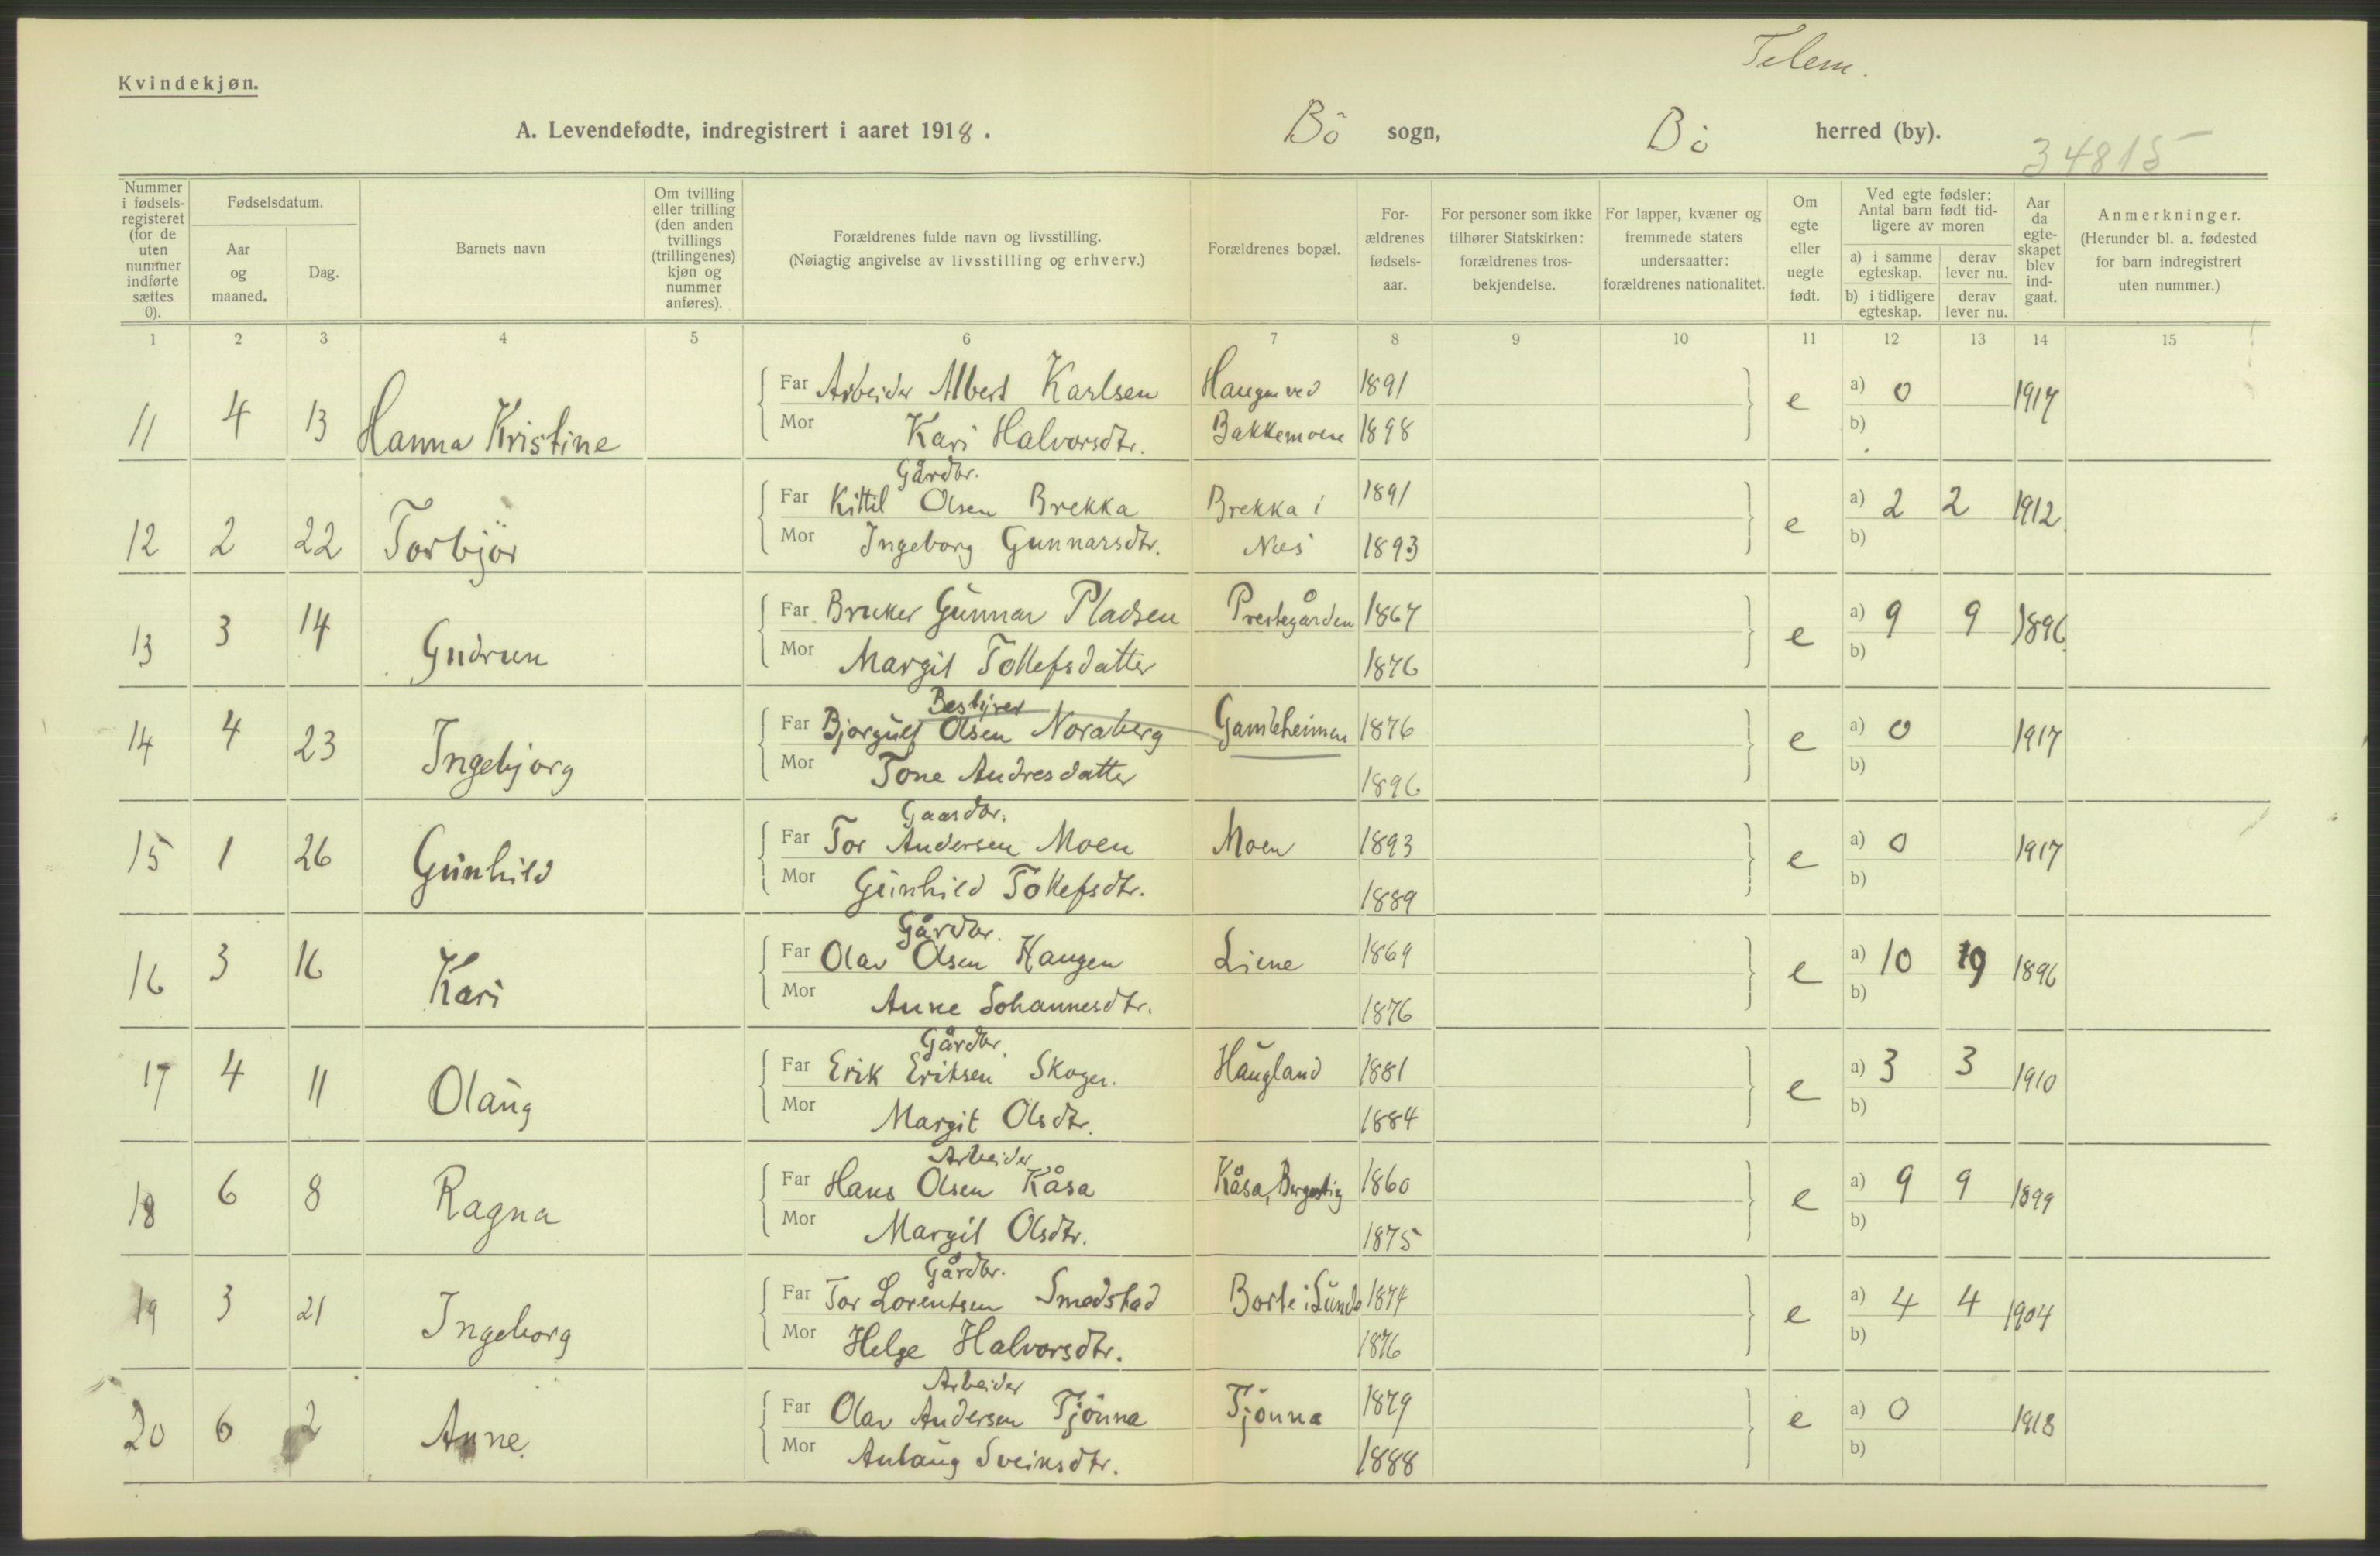 Telem.
Kvindekjøn.
A. Levendefødte, indregistrert i aaret 1918. Bö sogn, Bö herred (by).
34815
Nummer i fødsels-registeret (for de uten nummer indførte sættes 0). Fødselsdatum. Aar og maaned. Dag. Barnets navn Om tvilling eller trilling (den anden tvillings (trillingenes) kjøn og nummer anføres). Forældrenes fulde navn og livsstilling. (Nøiagtig angivelse av livsstilling og erhverv.) Forældrenes bopæl. For-ældrenes fødsels-aar. For personer som ikke tilhører Statskirken: forældrenes tros-bekjendelse. For lapper, kvæner og fremmede staters undersaatter: forældrenes nationalitet. Om egte eller uegte født. Ved egte fødsler: Antal barn født tid-ligere av moren a) i samme egteskap. derav lever nu. b) i tidligere egteskap. derav lever nu. Aar da egte-skapet blev ind-gaat. Anmerkninger. (Herunder bl. a. fødested for barn indregistrert uten nummer.)
1 2 3 4 5 6 7 8 9 10 11 12 13 14 15
11 4 13 Hanna Kristine Far Arbeider Albert Karlsen Haugen ved 1891 e a) 0 1917
Mor Kari Halvorsdtr. Bakkemoene 1898 b)
Gårdbr.
12 2 22 Torbjör Far Kittil Olsen Brekka Brekka i 1891 e a) 2 2 1912
Mor Ingeborg Gunnarsdtr. Nes 1893 b)
13 3 14 Gudrun Far Bruker Gunnar Pladsen Prestegården 1867 e a) 9 9 1896
Mor Margit Tollefsdatter 1876 b)
Bestyrer
14 4 23 Ingebjorg Far Bjorgulf Olsen Noraberg Gamleheimen 1876 e a) 0 1917
Mor Tone Andresdatter 1896 b)
Gaardbr.
15 1 26 Gunhild Far Tor Andersen Moen Moen 1893 e a) 0 1917
Mor Gunhild Tollefsdtr. 1889 b)
Gårdbr.
16 3 16 Kari Far Olav Olsen Haugen Liene 1869 e a) 10 9 1896
Mor Anne Johannesdtr. 1876 b)
Gårdbr.
17 4 11 Olaug Far Erik Eriksen Skogen. Haugland 1881 e a) 3 3 1910
Mor Margit Olsdtr. 1884 b)
Arbeider
18 6 8 Ragna Far Hans Olsen Kåsa Kåsa, 1860 e a) 9 9 1899
Mor Margit Olsdtr. 1875 b)
Gårdbr.
19 3 21 Ingeborg Far Tor Lorentsen Smedstad Borte i Sunde 1874 e a) 4 4 1904
Mor Helge Halvorsdtr. 1876 b)
Arbeider
20 6 2 Anne Far Olav Andersen Tjönna Tjönna 1879 e a) 0 1918
Mor Anlaug Sveinsdtr. 1888 b)